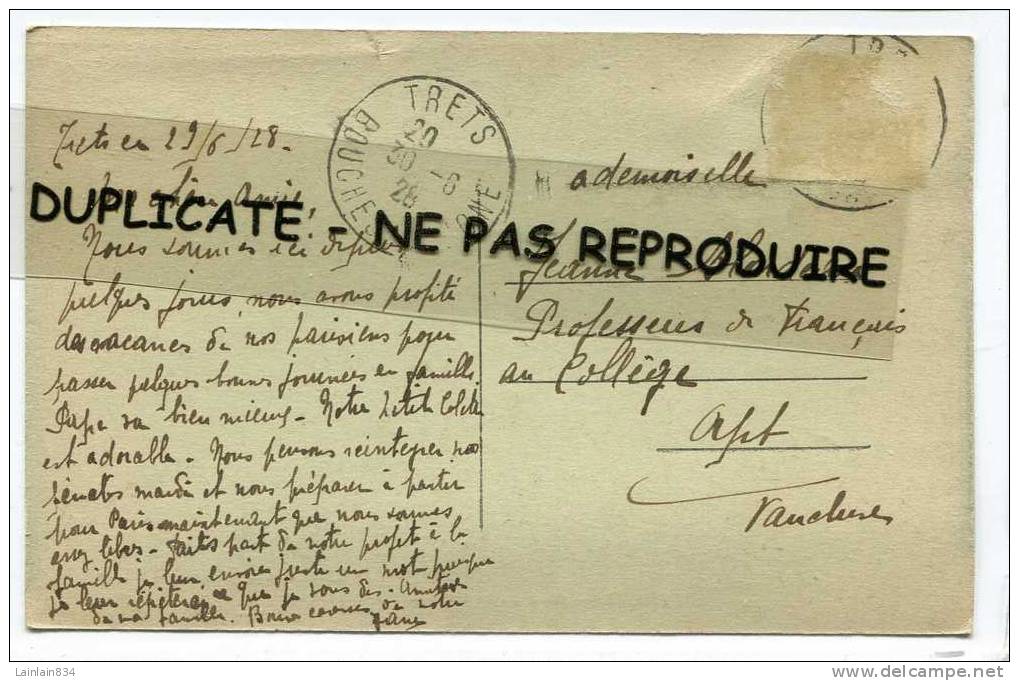 Trets en 29/6/28.
Amie,
Nous sommes ici depuis
quelques jours, nous avons profité
des vacances de nos parisiens pour
passer quelques bonnes journées en famille.
Papa va bien mieux. Notre petite
est adorable. Nous pensons réintégrer nos
pénates mardi et nous préparer à partir
pour Paris maintenant que nous sommes
assez libres. Faites part de notre à la
famille je leur envoie juste un mot puisque
je leur que je vous dis. Amitiés
de ma famille. Bonnes de votre
TRETS
20
30 -6
28
BOUCHES
NE
Mademoiselle
Jeanne
Professeur de Français
au Collège
Apt
Vaucluse
DUPLICATE - NE PAS REPRODUIRE
Lainlain834
www.delcampe.net